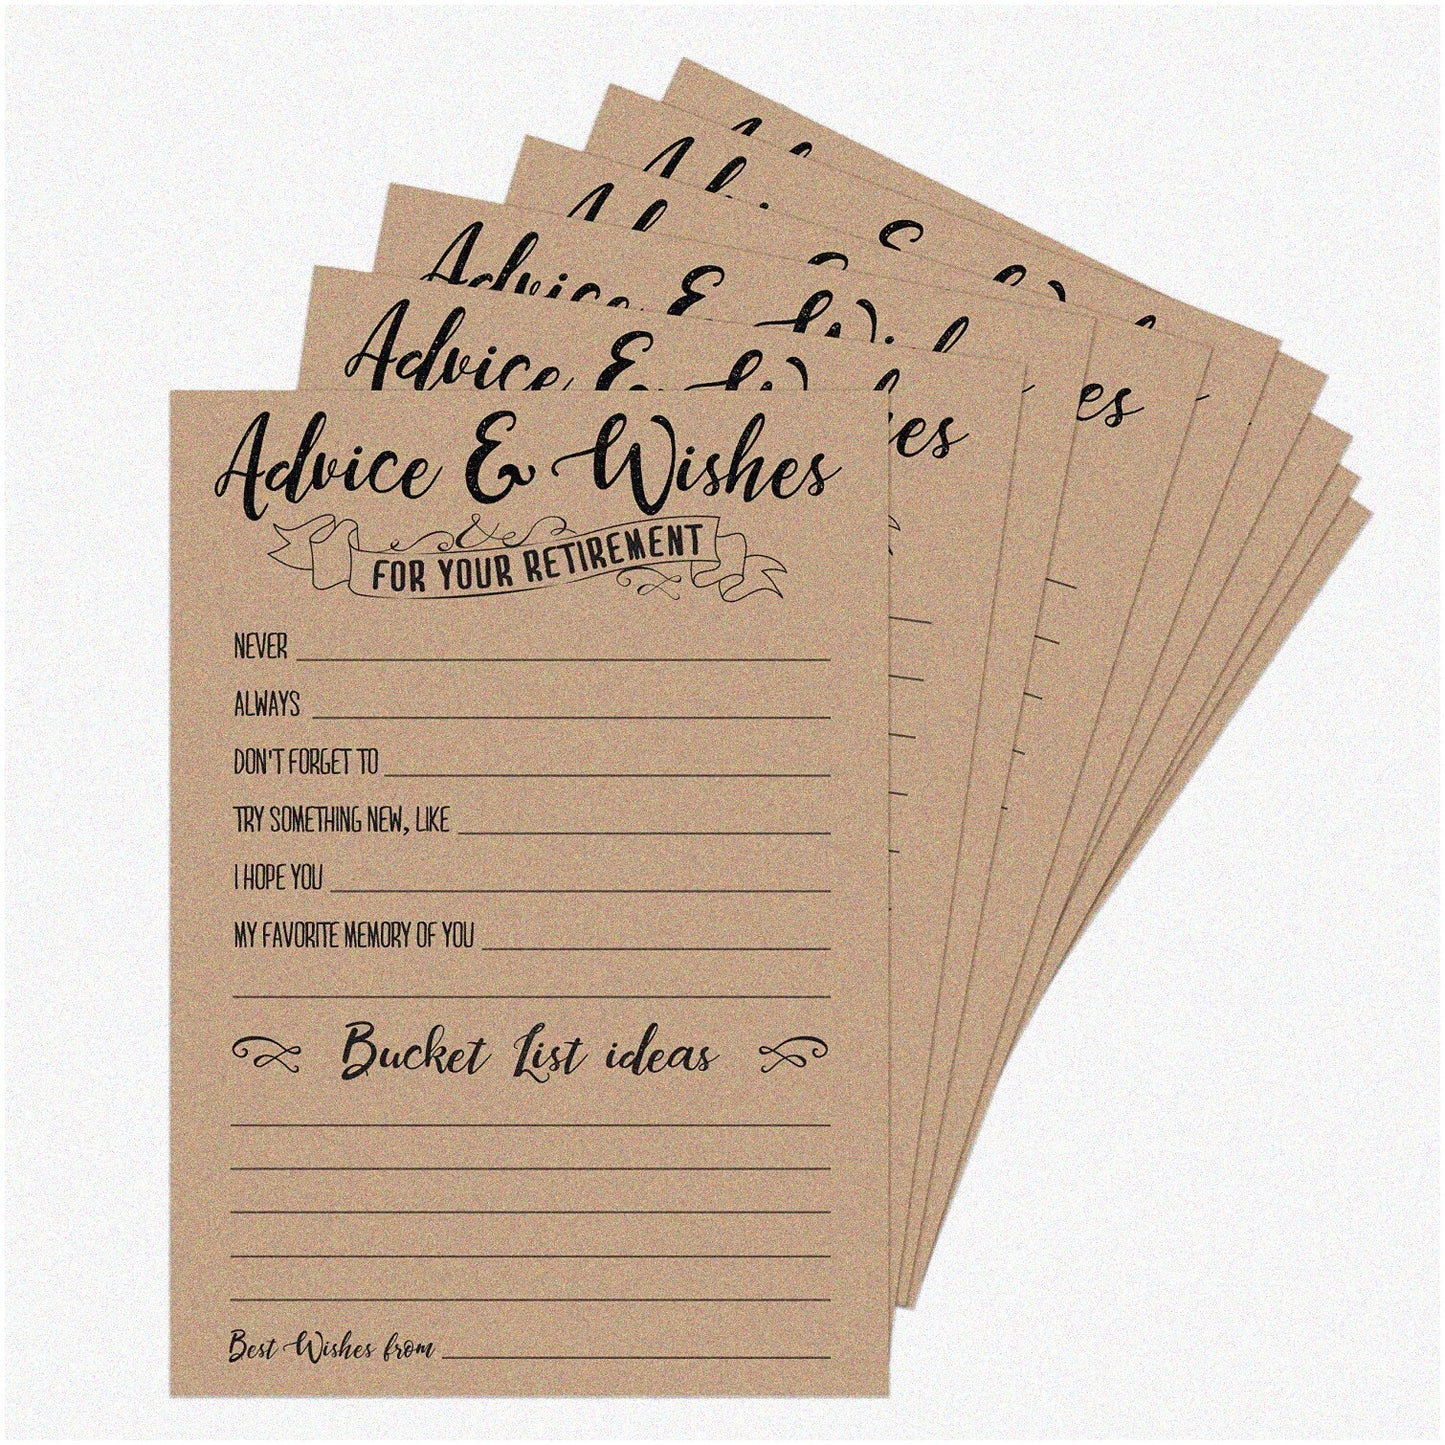 Advice & Wishes
FOR YOUR RETIREMENT
NEVER
ALWAYS
DON'T FORGET TO
TRY SOMETHING NEW, LIKE
I HOPE YOU
MY FAVORITE MEMORY OF YOU
Bucket List ideas
Best Wishes from
Advice &
Advice &